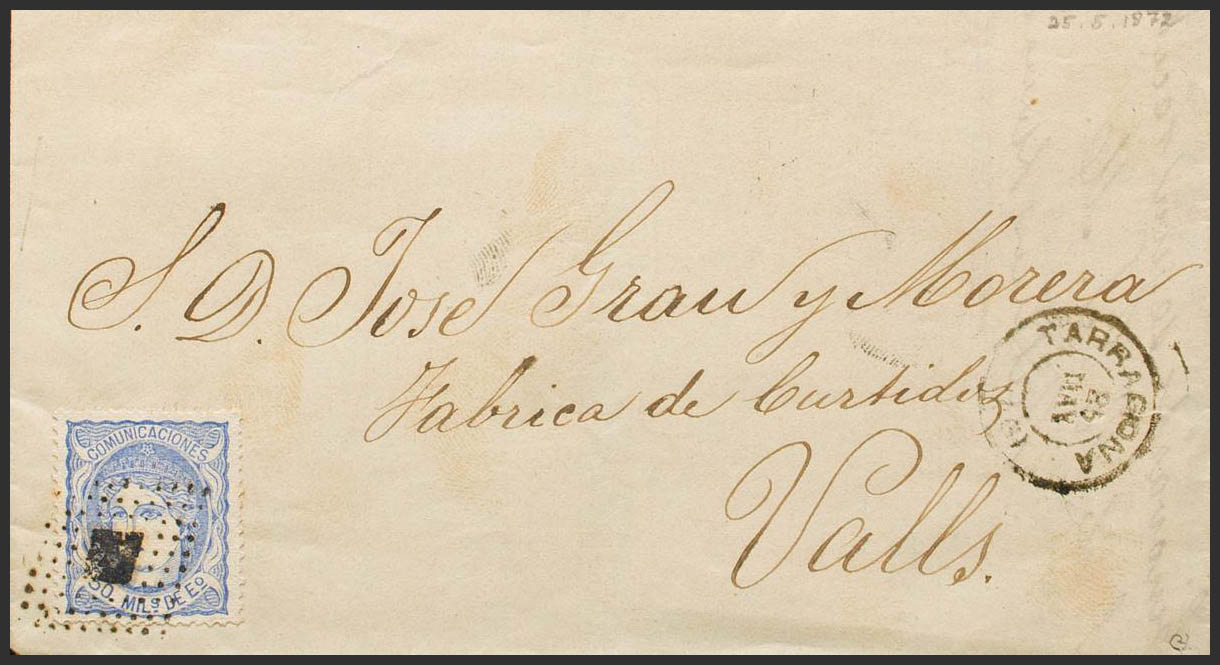 25.5.1872
S. D. Jose Grau y Morera
Fabrica de Curtidos
Valls.
TARRAGONA
25
MAY
COMUNICACIONES
50. MILS. DE Eo.